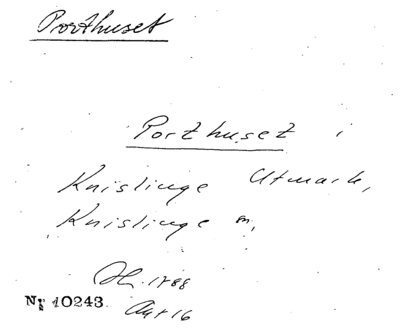 Porthuset
Porthuset i
Knislinge Utmark,
Knislinge sn,
1788
Nr 10243.
16